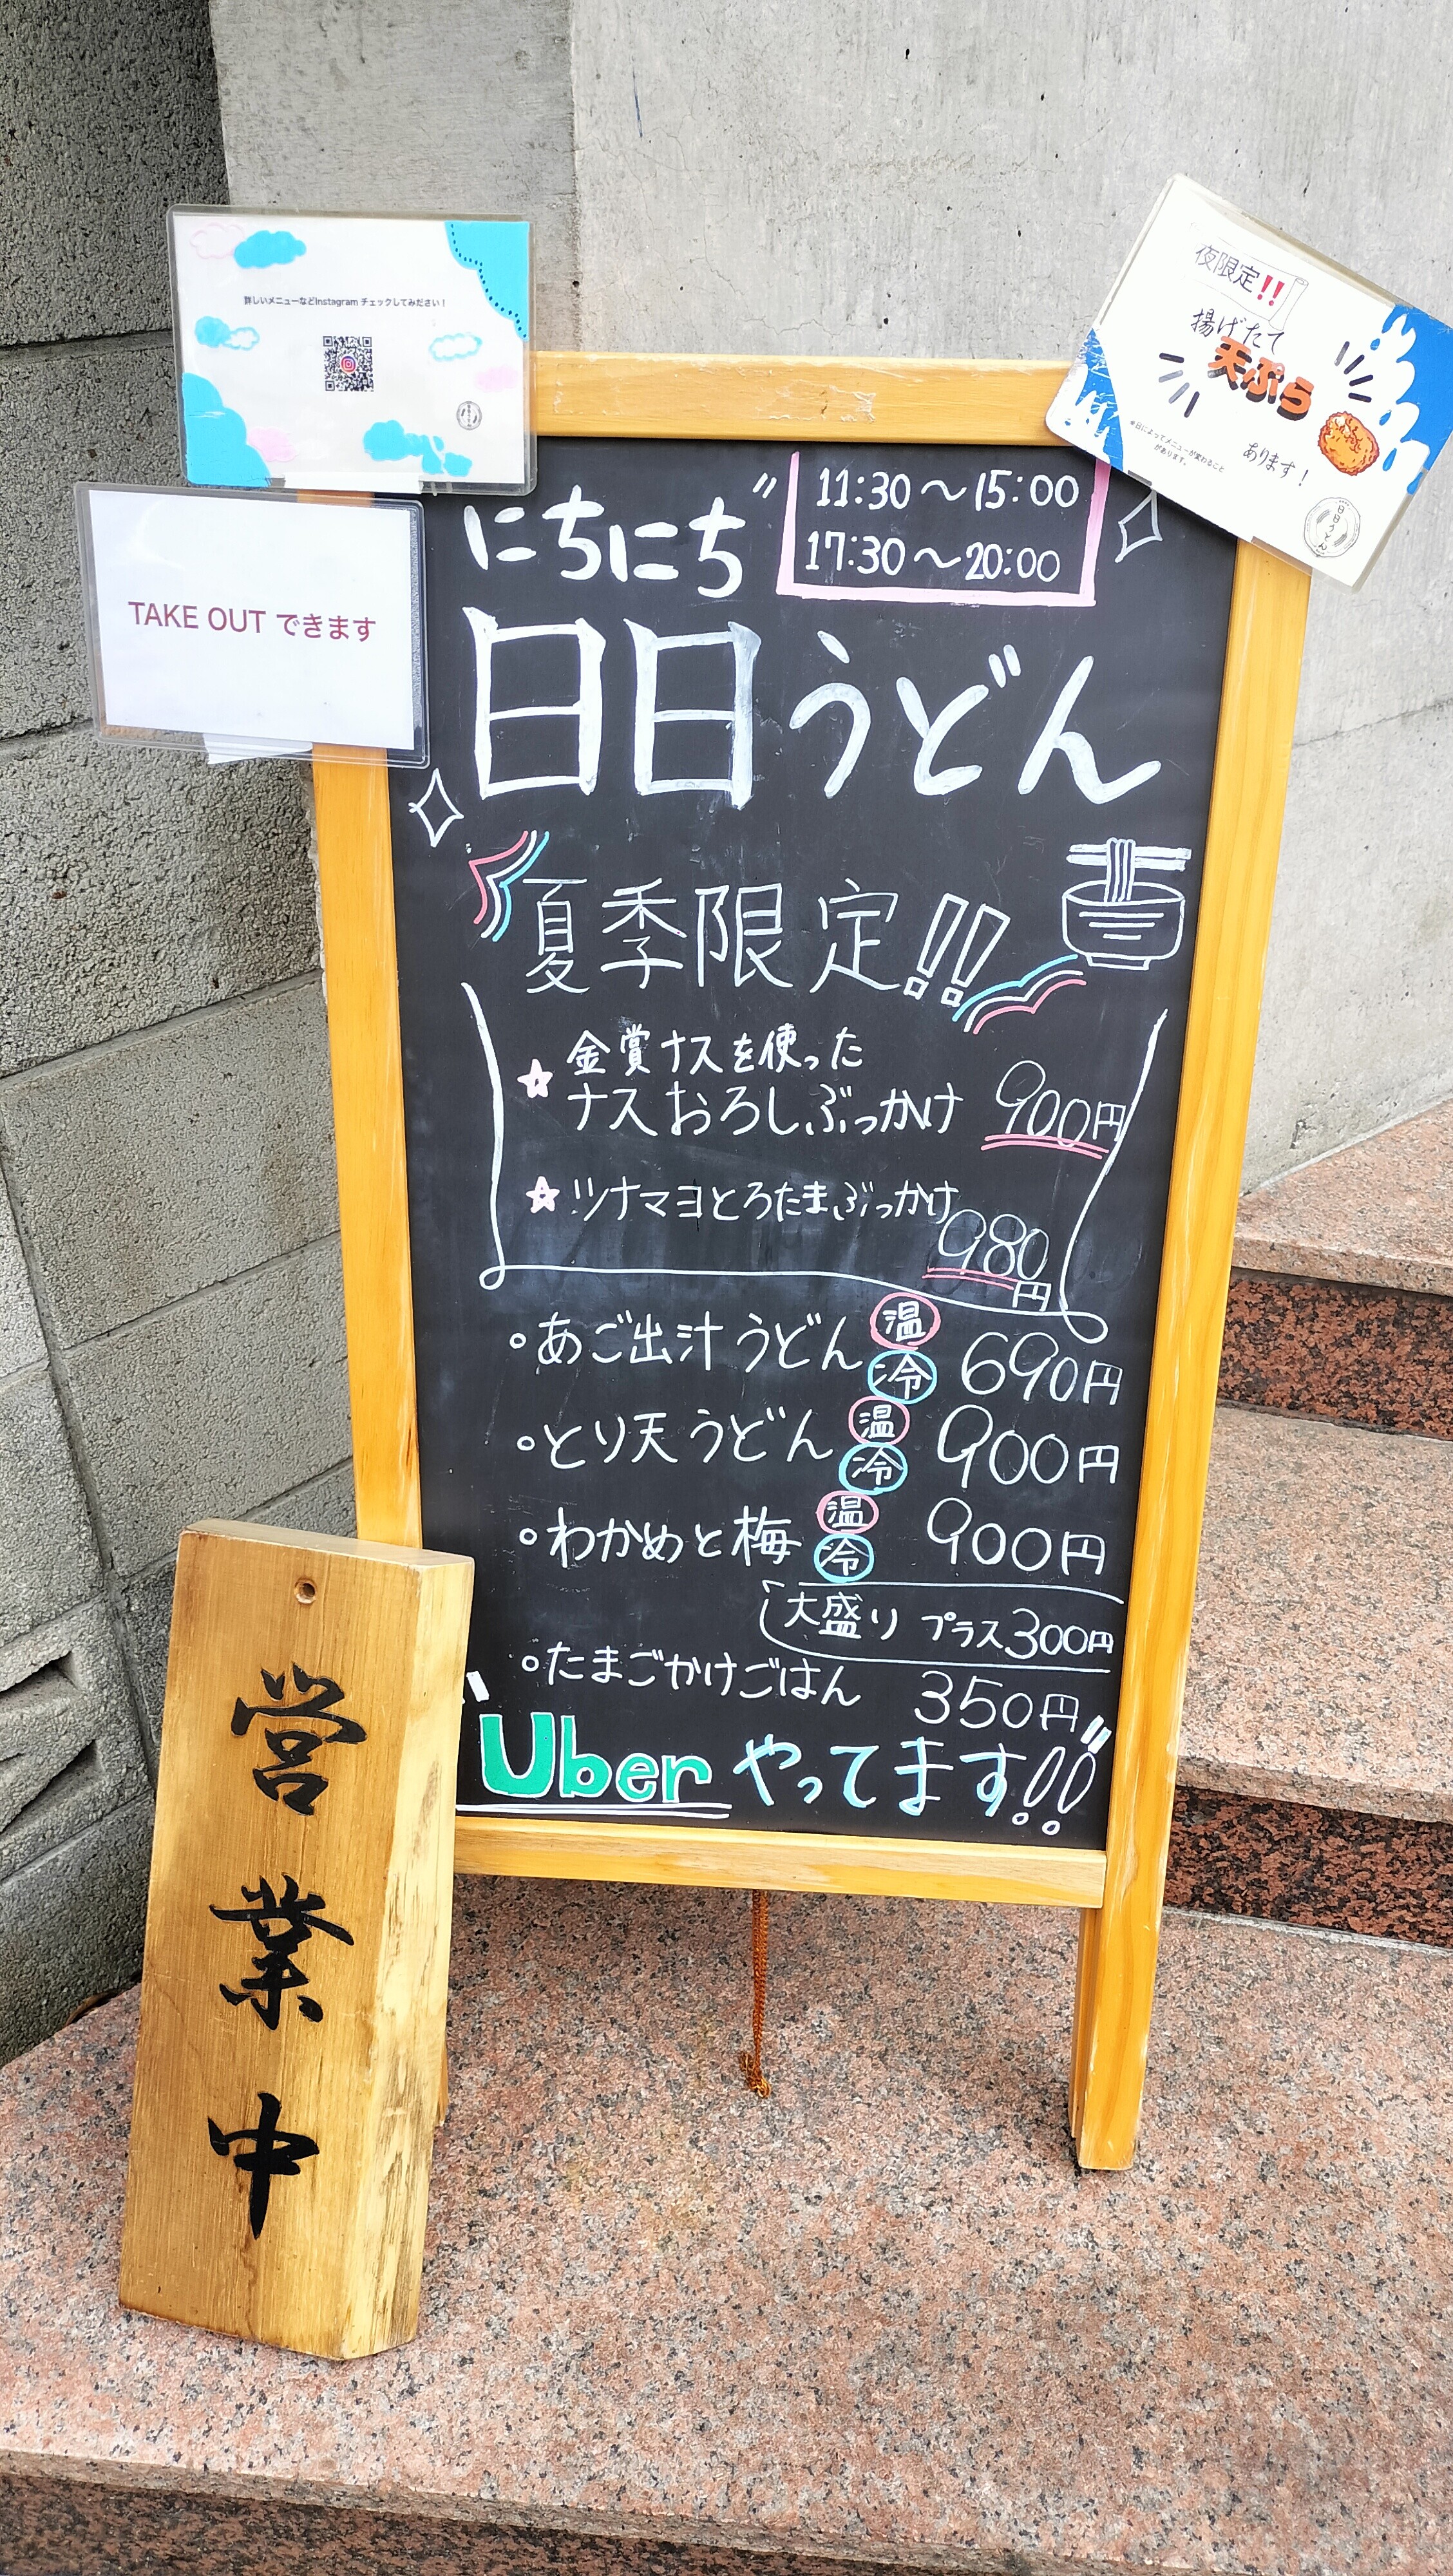 詳しいメニューなどInstagram チェックしてみださい！
TAKE OUT できます
夜限定!!
揚げたて
天ぷら
あります！
※日によってメニューが変わること
があります。
日日うどん
にちにち
11:30～15:00
17:30～20:00
日日うどん
夏季限定!!
金賞ナスを使った
ナスおろしぶっかけ 900円
ツナマヨとろたまぶっかけ
980円
あご出汁うどん 温 冷 690円
とり天うどん 温 冷 900円
わかめと梅 温 冷 900円
大盛り プラス300円
たまごかけごはん 350円
Uber やってます!!
営業中